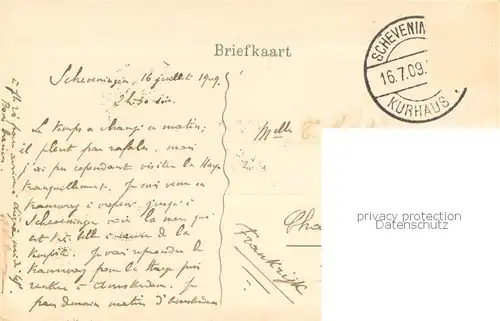 Briefkaart
SCHEVENIN
16.7.09.
KURHAUS
Scheveningen, 16 juillet 1909.
2h.30 soir
Le temps a changé ce matin;
il pleut par rafales, mais
j'ai pu cependant visiter La Haye
tranquillement. Je suis venu en
tramway à vapeur jusqu'à
Scheveningen voir la mer qui
est très belle à cause de la
tempête. Je vais reprendre le
tramway pour La Haye puis
rentrer à Amsterdam. Je
pars demain matin d'Amsterdam
Melle
Cha
Frankrijk
privacy protection
Datenschutz